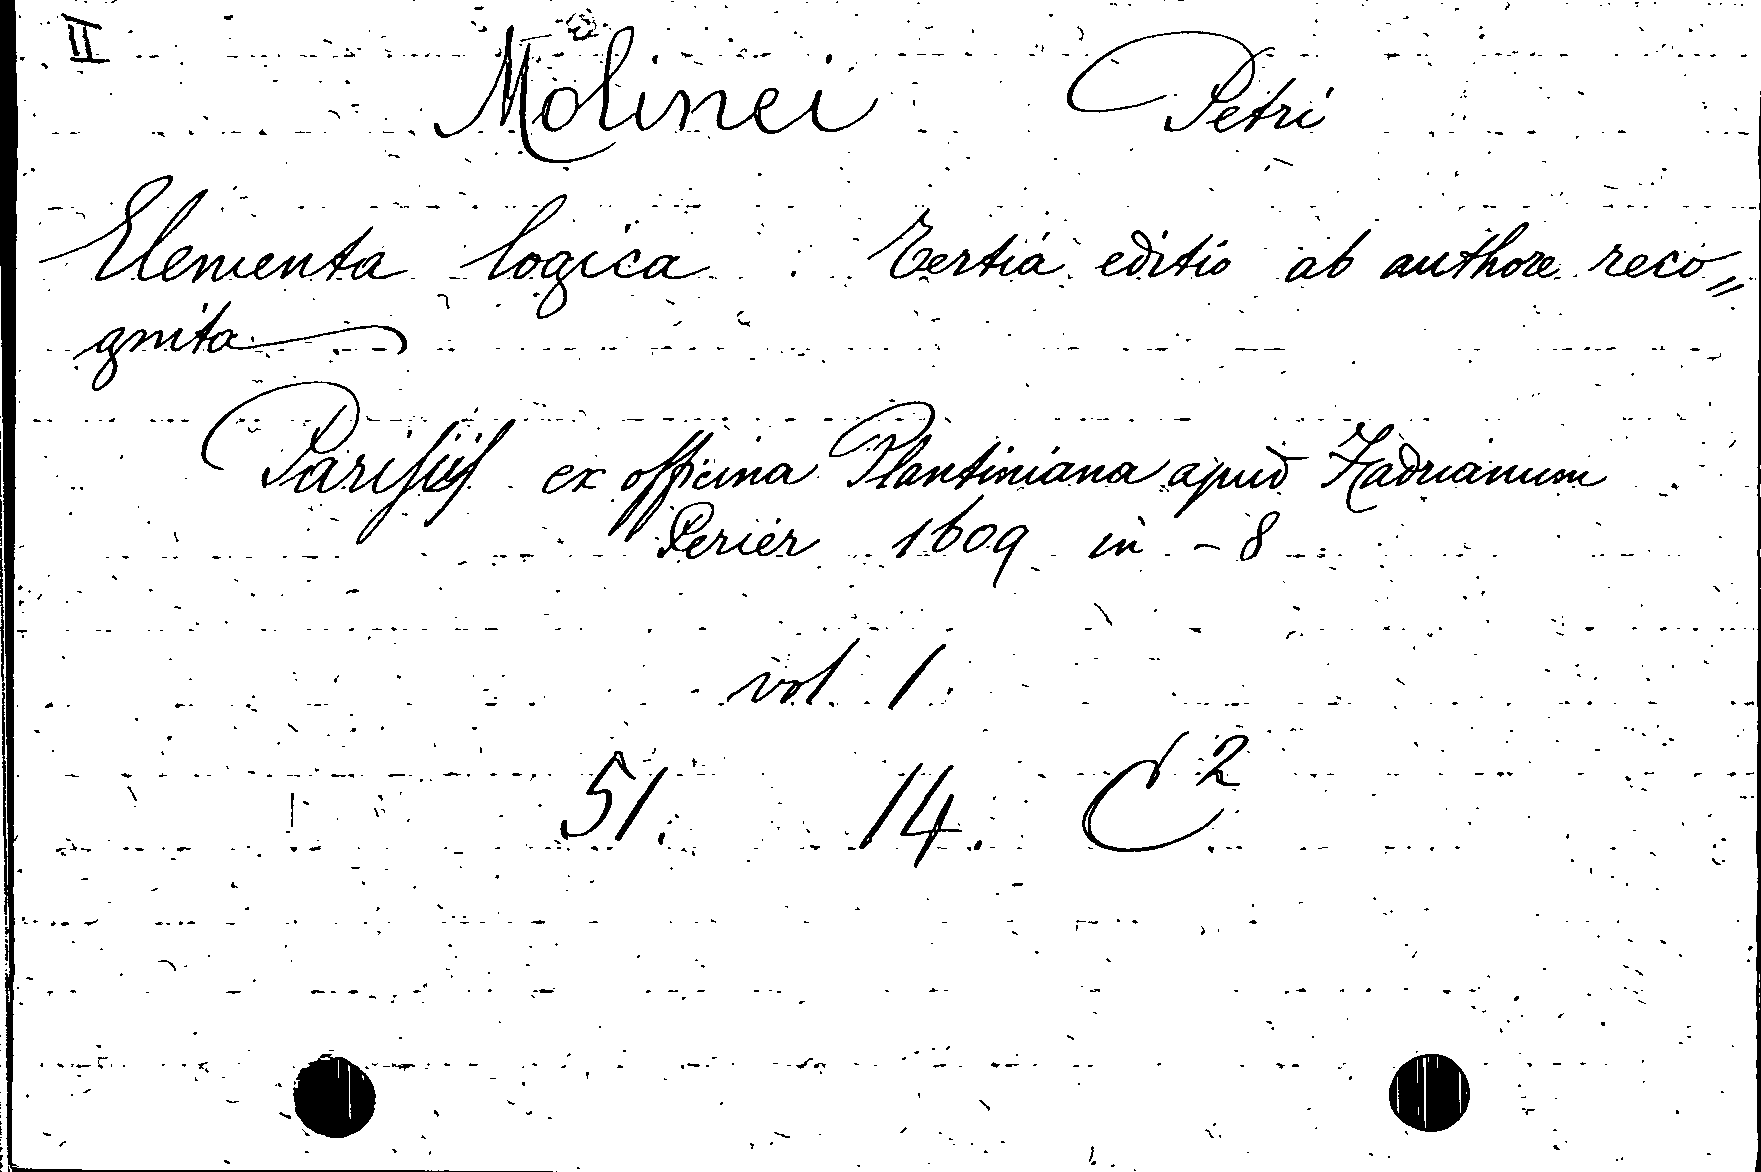 II
Molinei Petri
Elementa logica. Tertia editio ab authore reco„
gnita
Parisiis ex officina Plantiniana apud Hadrianum
Perier 1609 in - 8
vol. 1.
51. 14. C²